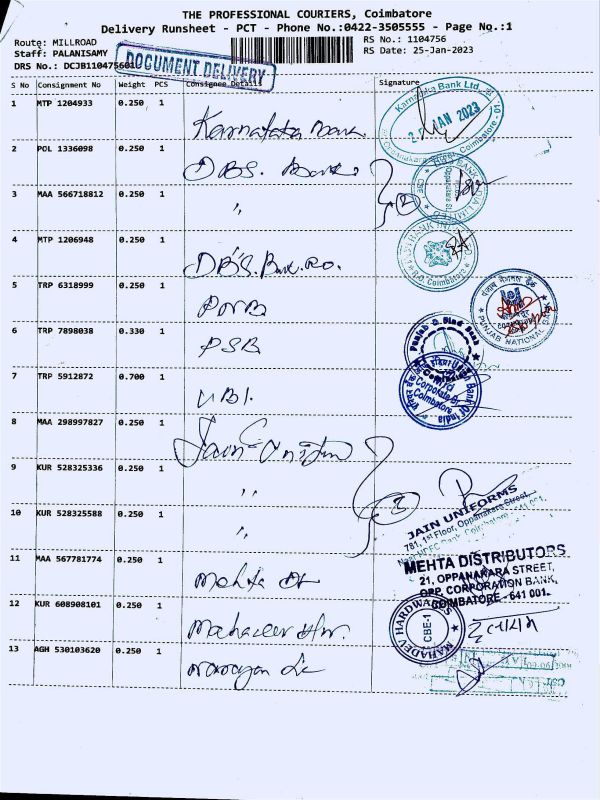 THE PROFESSIONAL COURIERS, Coimbatore
Delivery Runsheet - PCT - Phone No.:0422-3505555 - Page No.:1
Route: MILLROAD
Staff: PALANISAMY
DRS No.: DCJB110475
RS No.: 1104756
RS Date: 25-Jan-2023
DOCUMENT DELIVERY
S No Consignment No Weight PCS Consignee Details Signature
1 MTP 1204933 0.250 1 Karnataka Bank
Karnataka Bank Ltd.
JAN 2023
Coimbatore -
2 POL 1336098 0.250 1 DBS. Bank
3 MAA 566718812 0.250 1 "
2
4 MTP 1206948 0.250 1 DBS. Bank. RO.
5 TRP 6318999 0.250 1 PNB
PUNJAB NATIONAL BANK
6 TRP 7898038 0.330 1 PSB
Punjab & Sind Bank
7 TRP 5912872 0.700 1 UBI.
Union Bank Of India
Coimbatore
8 MAA 298997827 0.250 1 Jain Uniform
9 KUR 528325336 0.250 1 "
10 KUR 528325588 0.250 1 "
3
JAIN UNIFORMS
781, 1st Floor, Oppanakara Street,
11 MAA 567781774 0.250 1 Mehta
MEHTA DISTRIBUTORS
21, OPPANAKARA STREET,
OPP. CORPORATION BANK,
COIMBATORE - 641 001.
12 KUR 608908101 0.250 1
MAHADEV HARDWARES
CBE-1
13 AGH 530103620 0.250 1 Narayan